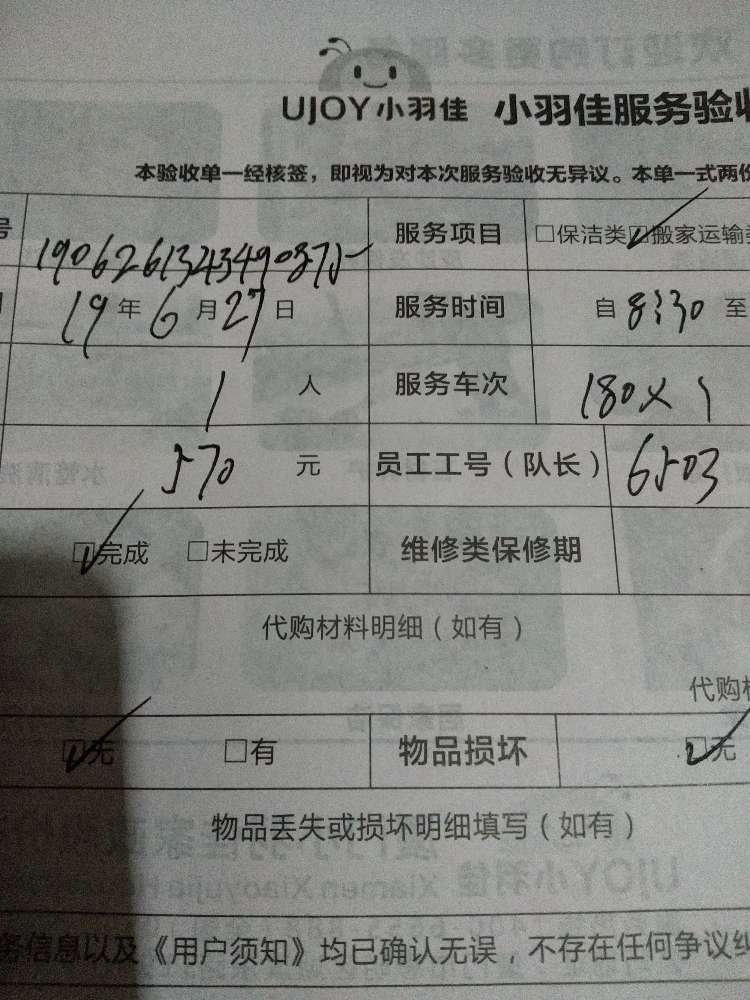 UJOY小羽佳 小羽佳服务验收
本验收单一经核签，即视为对本次服务验收无异议。本单一式两份
号 服务项目 □保洁类 ☑搬家运输类
19年6月27日 服务时间 自 8:30 至
1 人 服务车次 180×1
570 元 员工工号（队长） 6503
☑完成 □未完成 维修类保修期
代购材料明细（如有）
代购材
☑无 □有 物品损坏 ☑无
物品丢失或损坏明细填写（如有）
务信息以及《用户须知》均已确认无误，不存在任何争议纠